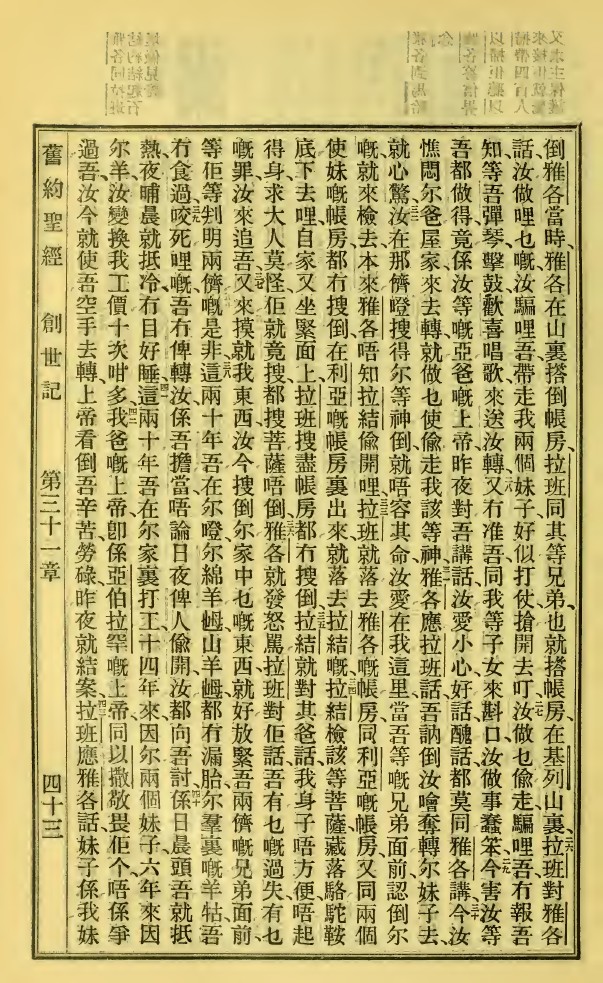 倒雅各當時、雅各在山裏撘倒帳房、拉班同其等兄弟也就撘帳房、在基列山裏、二六拉班對雅各
話、汝做哩乜嘅、汝騙哩吾帶走我兩個妹子、好似打仗搶開去叮、二七汝做乜偷走騙哩吾、冇報吾
知、等吾彈琴擊鼓歡喜唱歌來送汝轉、二八又冇准吾同我等子女來斟口、汝做事蠢笨、二九今害汝等
吾都做得、竟係汝等嘅亞爸嘅上帝昨夜對吾講話、汝愛小心、好話醜話都莫同雅各講、三十今汝
憔悶尔爸屋家來去轉就做乜使偷走我該等神、三一雅各應拉班話、吾訥倒汝噲奪轉尔妹子去、
就心驚、三二汝在那儕嶝搜得尔等神倒、就唔容其命、汝愛在我這里、當吾等嘅兄弟面前、認倒尔
嘅就來檢去、本來雅各唔知拉結偷開哩、三三拉班就落去雅各嘅帳房、同利亞嘅帳房、又同兩個
使妹嘅帳房、都冇搜倒、在利亞嘅帳房裏出來、就落去拉結嘅、三四拉結檢該等菩薩藏落駱駝鞍
底下去哩、自家又坐緊面上、拉班搜盡帳房、都冇搜倒、三五拉結就對其爸話、我身子唔方便、唔起
得身、求大人莫怪、佢就竟搜都搜菩薩唔倒、三六雅各就發怒罵拉班、對佢話、吾有乜嘅過失、有乜
嘅罪、汝來追吾、三七又來摸就我東西、汝今搜倒尔家中乜嘅東西、就好放緊吾兩儕嘅兄弟面前、
等佢等判明兩儕嘅是非、三八這兩十年吾在尔嶝、尔綿羊㜷山羊㜷都冇漏胎、尔羣裏嘅羊牯吾
冇食過、三九咬死哩嘅吾冇俾轉汝、係吾擔當、唔論日夜俾人偷開、汝都向吾討、四十係日晨頭吾就抵
熱、夜晡晨就抵冷、冇目好睡、四一這兩十年吾在尔家裏打工、十四年來因尔兩個妹子、六年來因
尔羊、汝變換我工價十次咁多、四二我爸嘅上帝、卽係亞伯拉罕嘅上帝、同以撒敬畏佢、今唔係爭
過吾、汝今就使吾空手去轉、上帝看倒吾辛苦勞碌、昨夜就結案、四三拉班應雅各話、妹子係我妹
舊約聖經　創世記　第三十一章　四十三